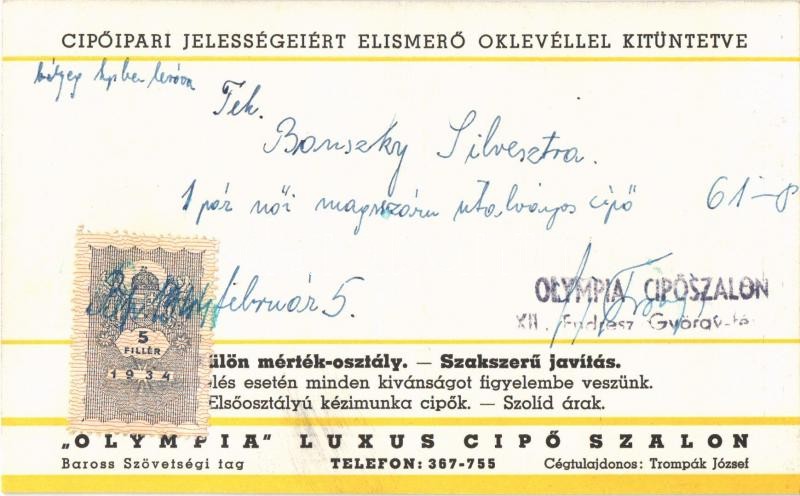 CIPŐIPARI JELESSÉGEIÉRT ELISMERŐ OKLEVÉLLEL KITÜNTETVE
bélyeg lerova
Tek.
Banszky Silvesztra.
1 pár női magasszáru utalványos cipő 61-P
február 5.
OLYMPIA CIPŐSZALON
XII. Endresz György-tér
5
FILLÉR
1934
ülön mérték-osztály. — Szakszerű javítás.
elés esetén minden kivánságot figyelembe veszünk.
Elsőosztályú kézimunka cipők. — Szolid árak.
„OLYMPIA" LUXUS CIPŐ SZALON
Baross Szövetségi tag TELEFON: 367-755 Cégtulajdonos: Trompák József